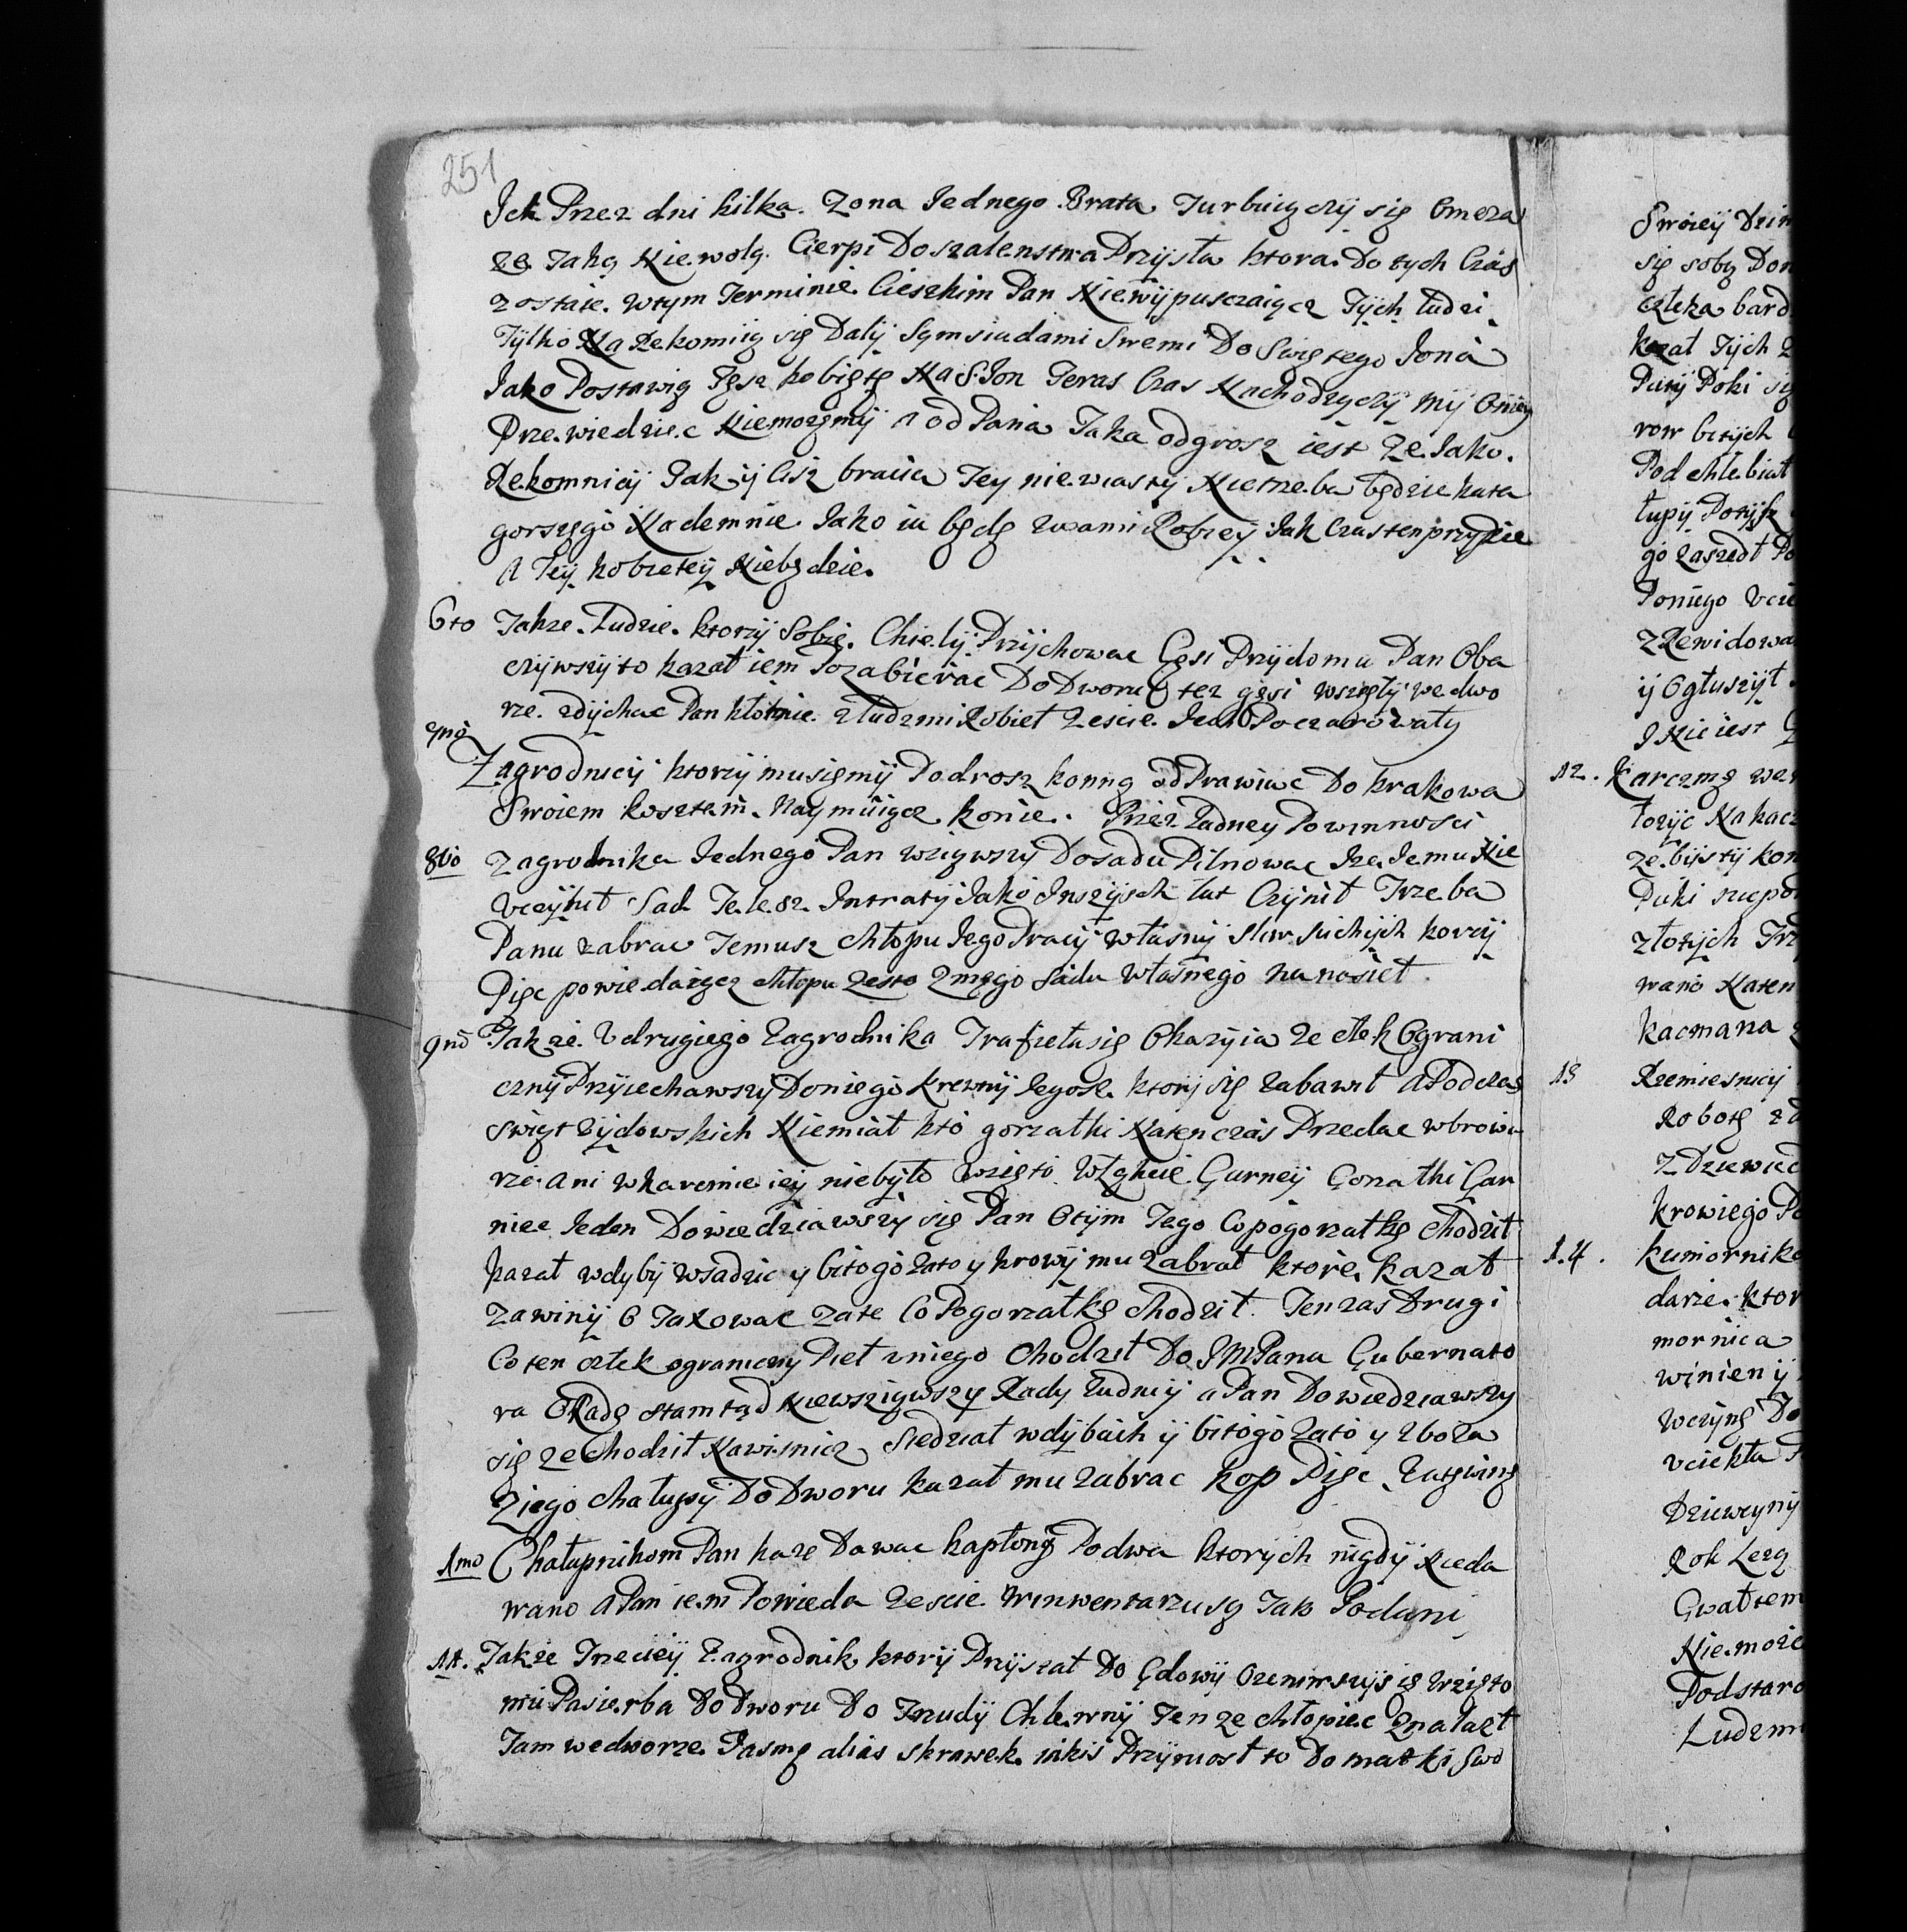 251
Ich Przez dni kilka. Zona Jednego Brata Turbuiączÿ się Omęza
ze Taką Niewolą. Cierpi Do szalenstwa Przysła ktora Do tych Czas
zostaie. wtym Terminie. Cieszkim Pan Niewÿpusczaiącz Tÿch ludzi
Tÿlko Na Rekomiią się Dalÿ Sąmsiadami Swemi Do Swiętego Jona
Jako Postawią Tęsz kobiętę Na S. Jon Teras Czas Nachodząçÿ mÿ Oniey
Przewiedziec Niemozęmÿ a od Pana Taka odgrosz iest Ze Jako
Rekomnicÿ Tak ÿ Cisz bracia Tey niewiastÿ Nietrzeba będzie kata
gorszego Nademnie Jako ia będę zwami Robieÿ Jak Czas ten przydzie
A Teÿ kobietÿ Niebędzie.
6to Takze Ludzie. ktorzÿ Sobie. Chielÿ Przÿchowac Gęsi Przÿdomu Pan Oba
czÿwszÿ to kazał iem Pozabierac Do Dworu O tez gęsi wszęłÿ we dwo
rze. zdÿchac Pan kłótnie z Ludzmi Robieł zescie. Je Poczarowały
7mo
Zagrodnicÿ ktorzÿ musięmÿ Podrosz konną odPrawiac Do Krakowa
Swoiem kosztem. Naymuiącz konie. Przez Zadney Powinnosci
8vo Zagrodnika Jednego Pan wziąwszy Dosadu Pilnowac Ize Jemu Nie
Vczÿnił Sad Telesz Intratÿ Jako Inszÿch lat Czÿnił Trzeba
Panu zabrac Temusz chłopu Jego Pracÿ własnÿ sliw suchÿch korcÿ
Pięc powiedaiącz chłopu zesto zmęgo sadu własnego nanosieł.
9no Takze Vdrugiego Zagrodnika Trafiełasię Okazÿia ze człek Ograni
cznÿ Przÿiechawszÿ Doniego krewnÿ Jegosz. ktorÿ się zabawił A Podczas
swiąt zÿdowskich Niemiał kto gorzałki Natenczas Przedac wbrowa
rze ani wkarcmie iey niebÿło wzięto Włękcie Gurneÿ Gorzałki Gar
niec Jeden Dowiedziawszÿ się Pan Otÿm Tego Co pogorzałkę chodził
kazał wdybÿ wsadzic y bitogo zato y krowÿ mu zabrał ktore. kazał
zawinÿ O Taxowac zate Co Pogorzałkę chodził. Ten zas Drugi
Co ten człek ograniczny Pieł vniego Chodził Do JMPana Gubernato
ra O Radę stamtąd Niewsziąwszy Rady Zadnÿ a Pan Dowiedziawszy
się ze Chodził Nawisnicz siedział wdÿbach ÿ bitogo zato y zboza
Ziego chałupÿ Do Dworu kazał mu zabrac kop Pięc zatęwinę
1mo Chałupnikom Pan kaze Dawac kapłony Podwa ktorych nigdÿ Nieda
wano A Pan iem Powieda zescie. winwentarzu są Tak Podani
11. Takze Trzecieÿ Zagrodnik ktorÿ Przÿszał Do Gdowÿ Ozeniwszÿ się wzięto
mu Pasierba Do Dworu Do Trzudÿ Chlewnÿ Ten ze chłopiec Znalazł
Tam wedworze. Pasmę alias skrawek iakis Przÿniosł to Do matki Swo
Swoieÿ Dzi
się sobą Don
człeka bard
kazał Tÿch
Putÿ Poki się
row bitÿch
Pod chlebiał
łupÿ Potÿsz
go zaszedł Po
Poniego vcie
zRewidowa
ÿ Ogłuszÿł
I Nic iest
12. Karczmę wz
łozÿc Nakacz
ze. bÿstÿ kon
Puki niepo
złotÿch Trz
wano Naten
kacmana
13 Rzemiesnicÿ
Robotę zd
Z Dziewiec
krowiego Po
1.4. kumornik
darze. ktor
mornica
winien ÿ
wczÿnę Do
vciekła
Dziewcÿnÿ
Rok Lezą
Gwałtem
Niemoze
Podstaro
Ludzm